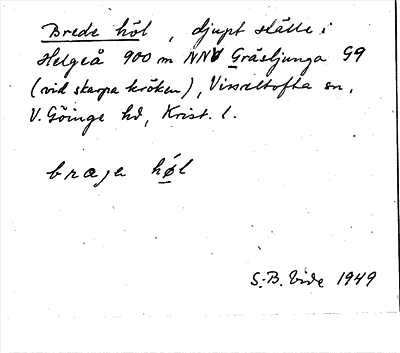 Brede höl, djupt ställe i
Helgeå 900 m NNV Gräsljunga G9
(vid skarpa kröken), Visseltofta sn,
V. Göinge hd, Krist. l.
bræje høl
S.-B. Vide 1949